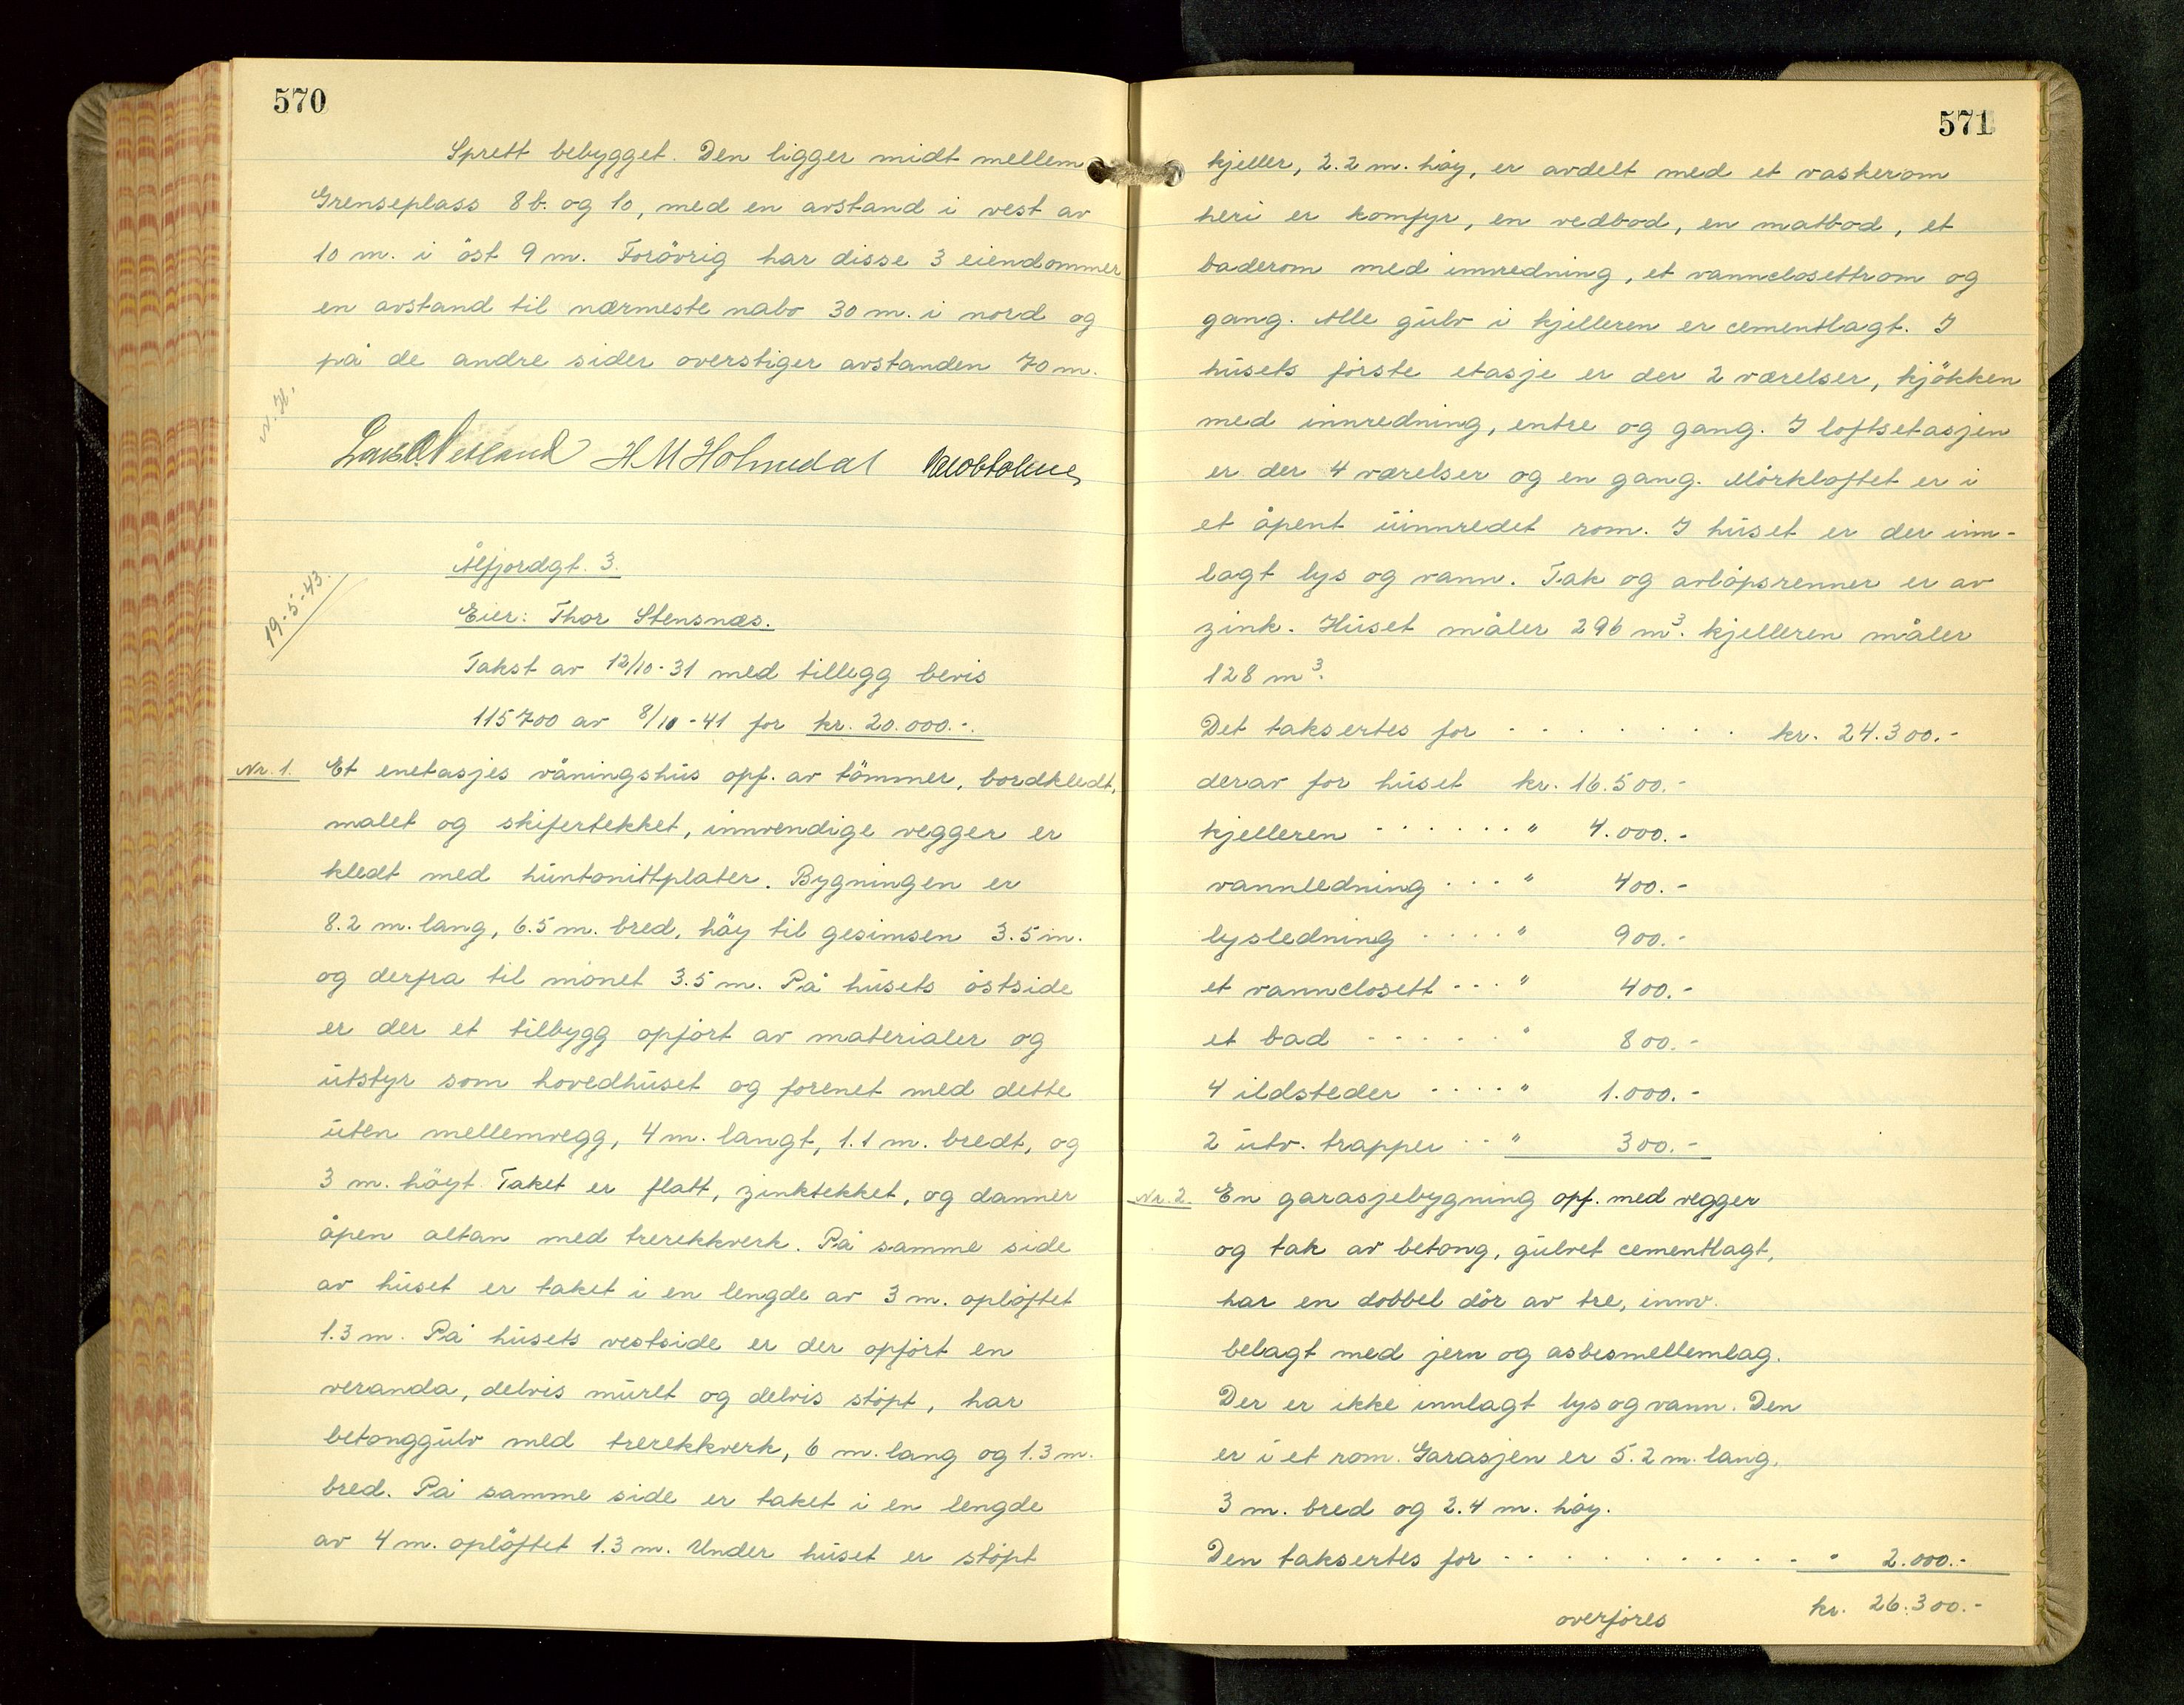 570
Sprett bebygget. Den ligger midt mellem
Grenseplass 8b. og 10, med en avstand i vest av
10 m. i öst 9 m. Forövrig har disse 3 eiendommer
en avstand til nærmeste nabo 30 m. i nord og
på de andre sider overstiger avstanden 70 m.
H M Holmedal
Ålfjordgt. 3.
19.-5-43.
Eier: Thor Stensnæs.
Takst av 12/10-31 med tillegg bevis
115700 av 8/10-41 for kr. 20.000.-.
Nr. 1. Et enetasjes våningshus opf. av tömmer, bordkledt,
malet og skifertekket, innvendige vegger er
kledt med huntonittplater. Bygningen er
8.2 m. lang, 6.5 m. bred, höy til gesimsen 3.5 m.
og derfra til mönet 3.5 m. På husets östside
er der et tilbygg opfört av materialer og
utstyr som hovedhuset og forenet med dette
uten mellemvegg, 4 m. langt, 1.1 m. bredt, og
3 m. höyt. Taket er flatt, zinktekket, og danner
åpen altan med trerekkverk. På samme side
av huset er taket i en lengde av 3 m. oplöftet
1.3 m. På husets vestside er der opfört en
veranda, delvis muret og delvis stöpt, har
betonggulv med trerekkverk, 6 m. lang og 1.3 m.
bred. På samme side er taket i en lengde
av 4 m. oplöftet 1.3 m. Under huset er stöpt
571
kjeller, 2.2 m. höy, er avdelt med et vaskerom
heri er komfyr, en vedbod, en matbod, et
baderom med innredning, et vannclosettrom og
gang. Alle gulv i kjelleren er cementlagt. I
husets förste etasje er der 2 værelser, kjökken
med innredning, entre og gang. I loftsetasjen
er der 4 værelser og en gang. Mörkloftet er i
et åpent uinnredet rom. I huset er der inn-
lagt lys og vann. Tak og avlöpsrenner er av
zink. Huset måler 296 m³. kjelleren måler
128 m³.
Det taksertes for . . . . . . . kr. 24.300.-
derav for huset kr. 16.500.-
kjelleren . . . . . . " 4.000.-
vannledning . . . " 400.-
lysledning . . . . " 900.-
et vannclosett . . . " 400.-
et bad . . . . . " 800.-
4 ildsteder . . . . " 1.000.-
2 utv. trapper . . " 300.-
Nr. 2. En garasjebygning opf. med vegger
og tak av betong, gulvet cementlagt,
har en dobbel dör av tre, innv.
belagt med jern og asbesmellemlag.
Der er ikke innlagt lys og vann. Den
er i et rom. Garasjen er 5.2 m. lang,
3 m. bred og 2.4 m. höy.
Den taksertes for . . . . . . . . . . " 2.000.-
overföres kr. 26.300.-